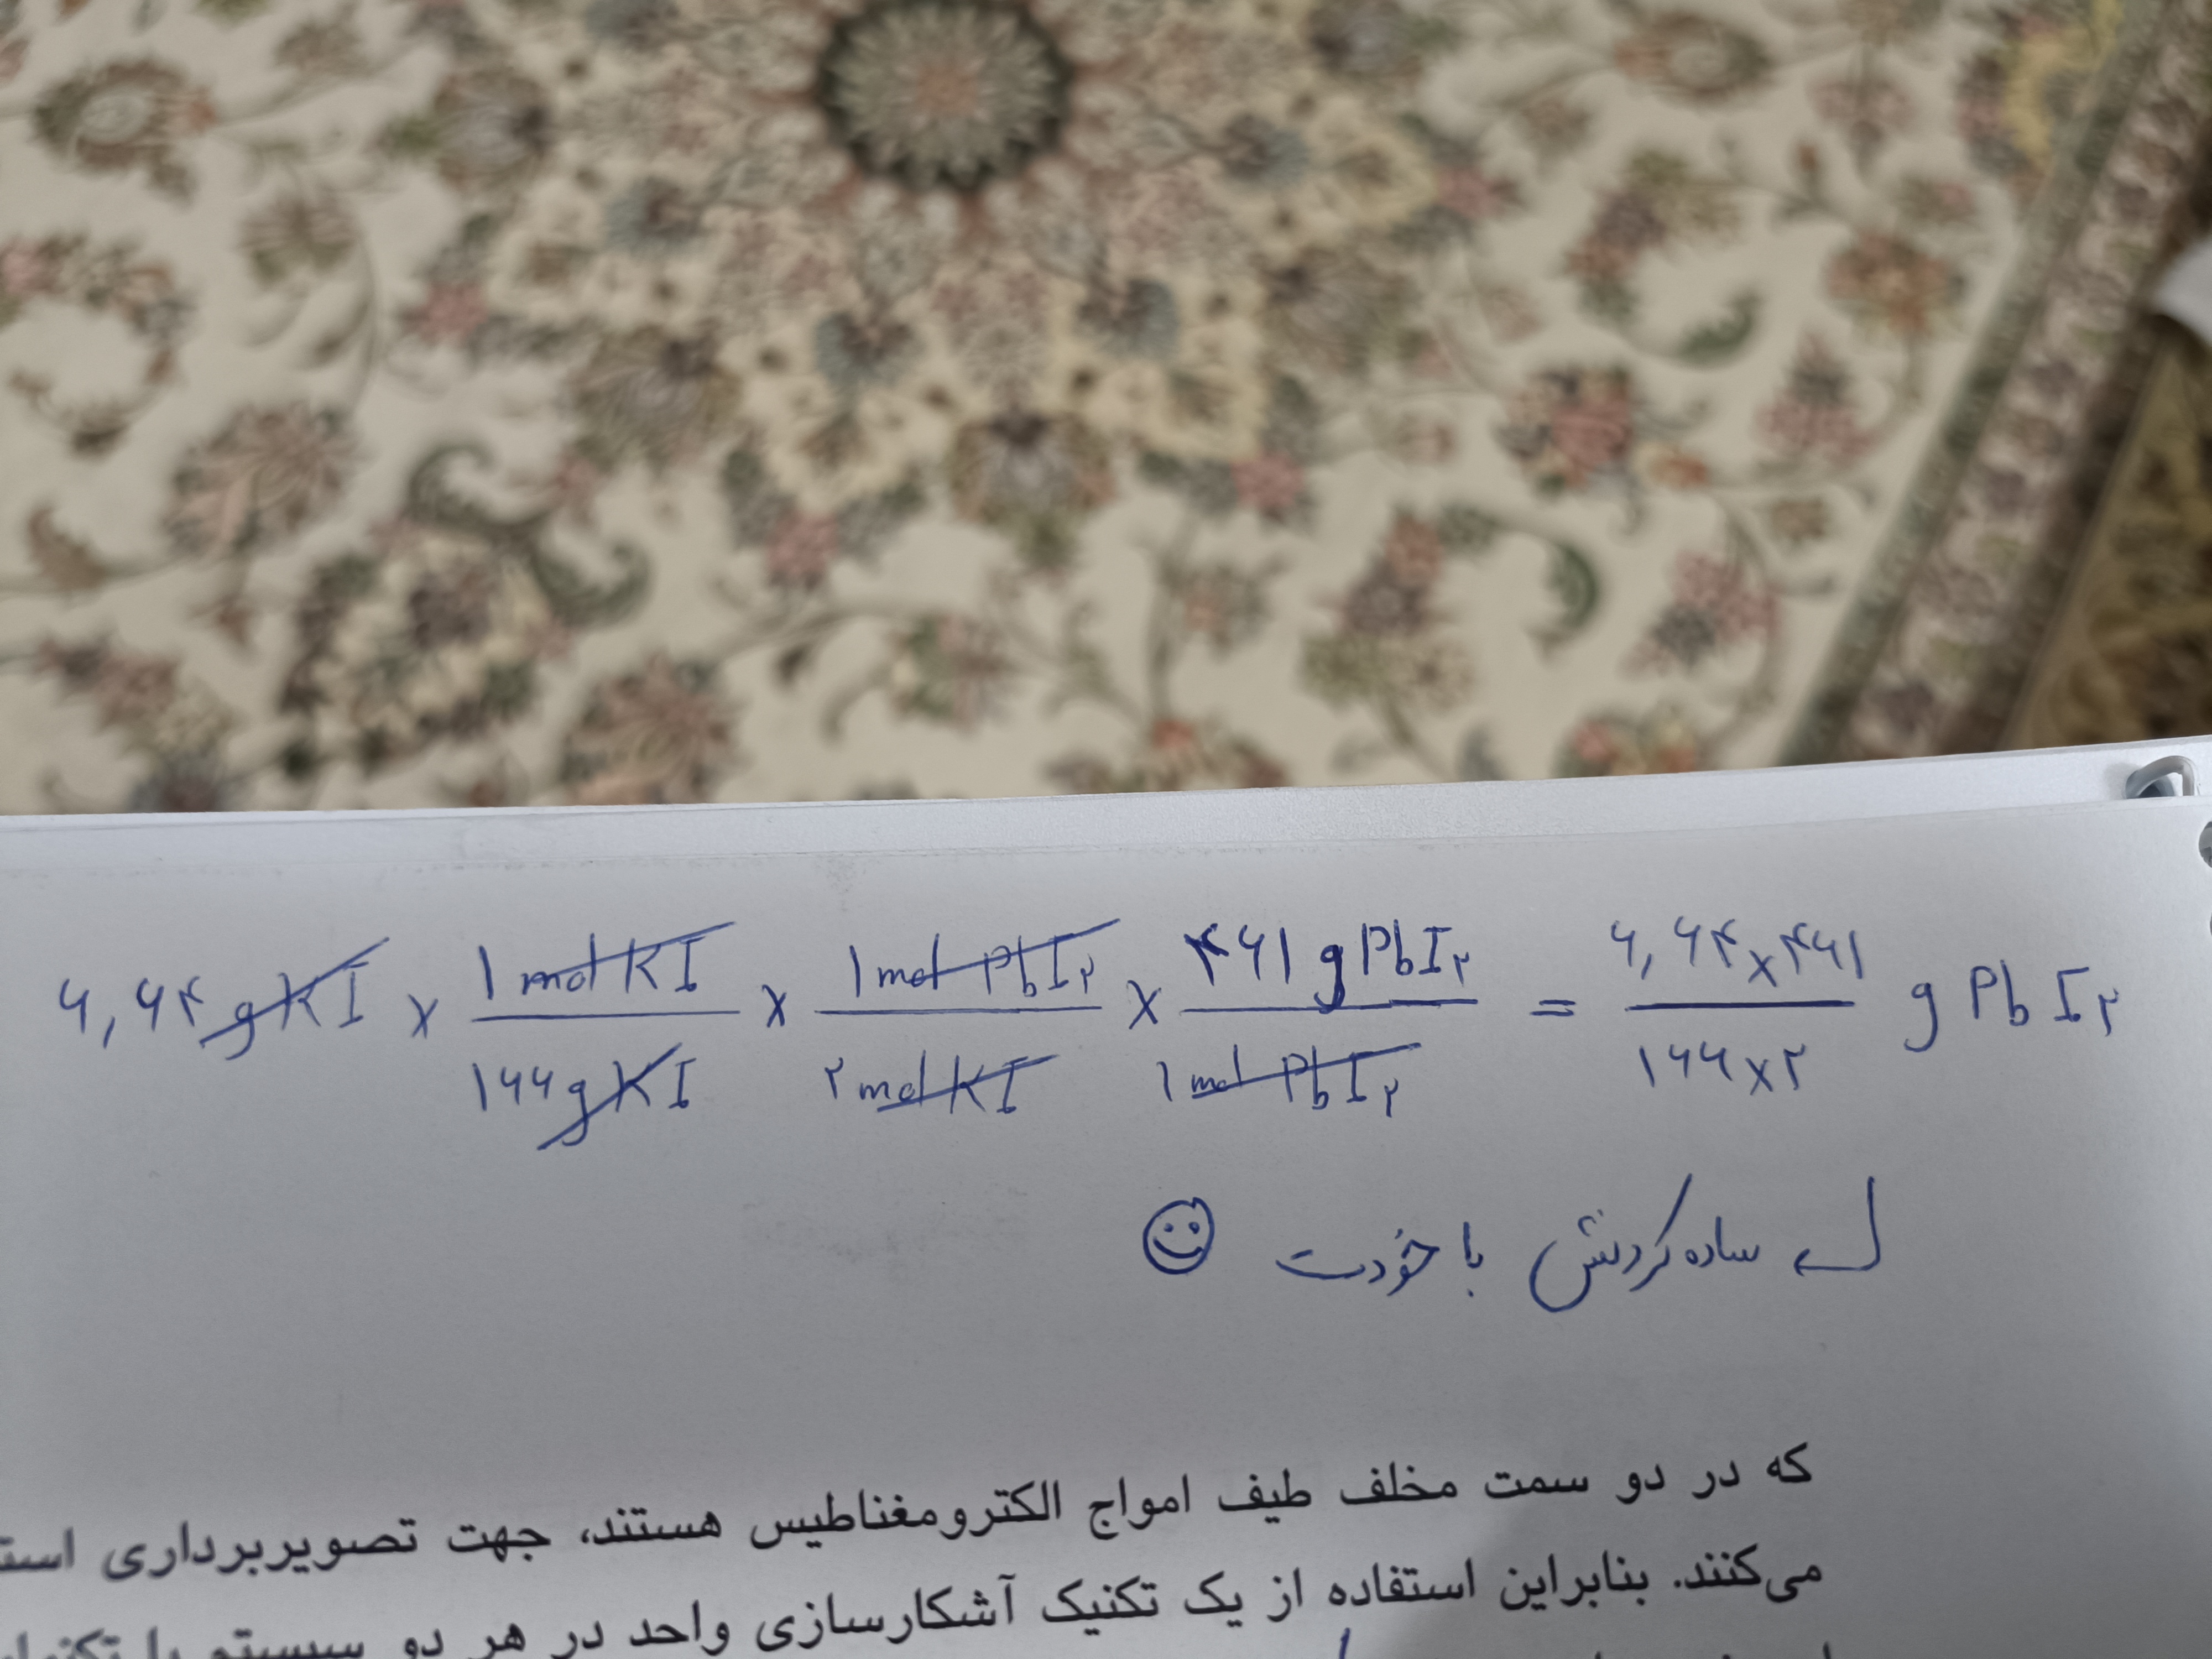 ۶,۶۴ g KI × ۱ mol KI / ۱۶۶ g KI × ۱ mol PbI۲ / ۲ mol KI × ۴۶۱ g PbI۲ / ۱ mol PbI۲ = ۶,۶۴ × ۴۶۱ / ۱۶۶ × ۲ g PbI۲
ساده کردنش با خودت
که در دو سمت مخلف طیف امواج الکترومغناطیس هستند، جهت تصویربرداری
می‌کنند. بنابراین استفاده از یک تکنیک آشکارسازی واحد در هر دو سیستم با